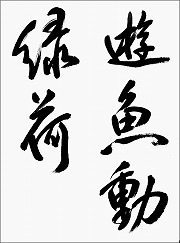 遊魚動
緑荷